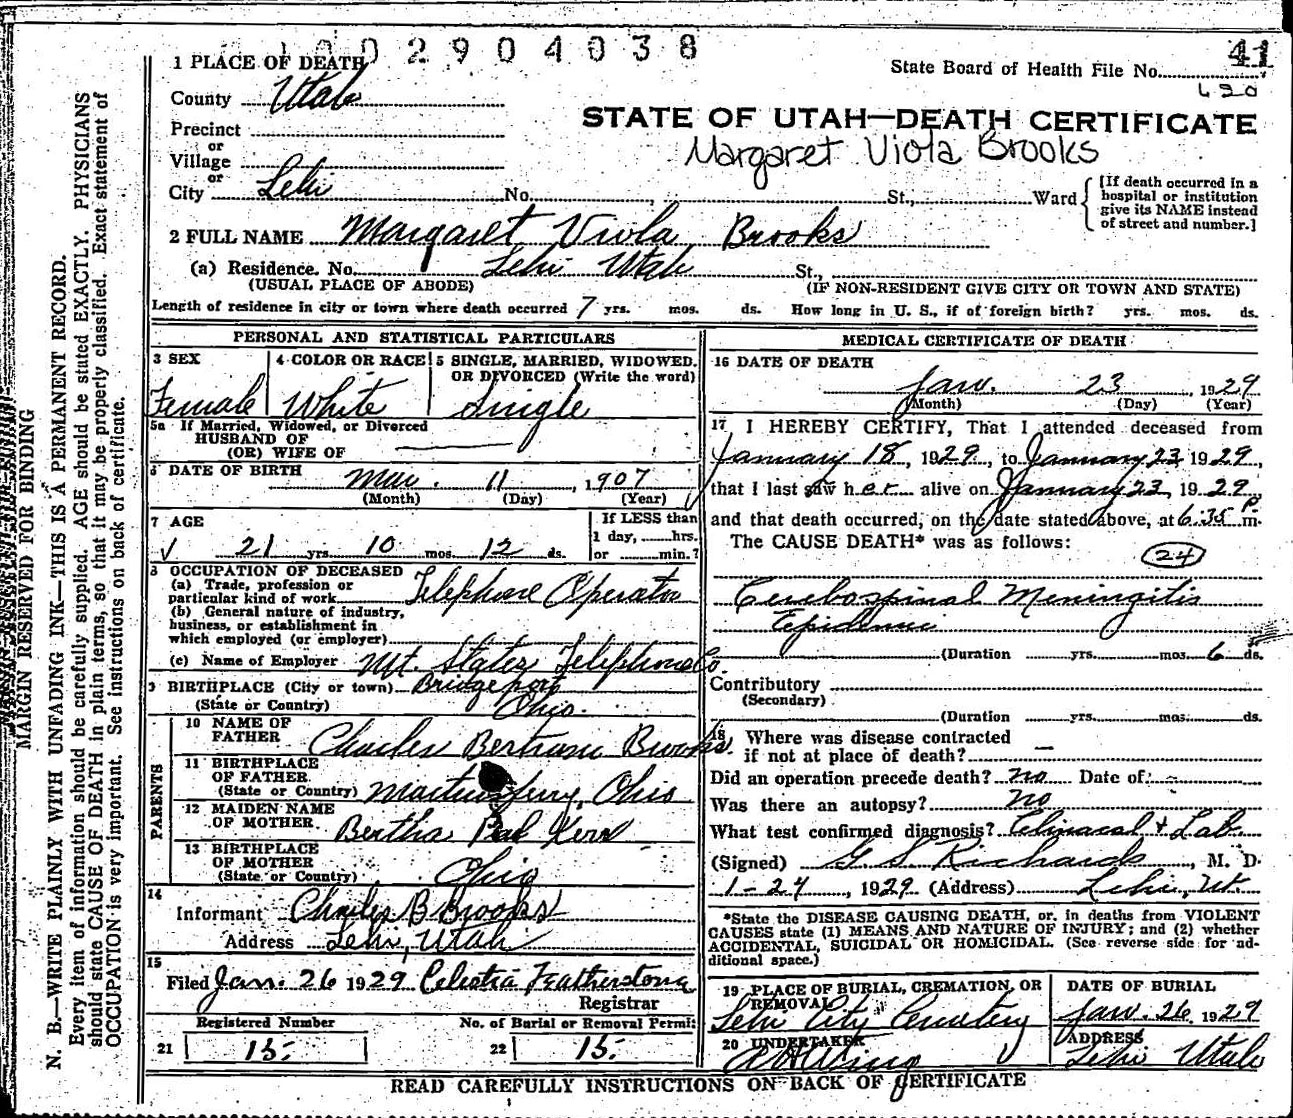 1002904038
41
1 PLACE OF DEATH
State Board of Health File No.
620
County Utah
STATE OF UTAH—DEATH CERTIFICATE
Precinct
Margaret Viola Brooks
or
Village
or
City Lehi No. St., Ward
[If death occurred in a hospital or institution give its NAME instead of street and number.]
2 FULL NAME Margaret Viola Brooks
(a) Residence. No. Lehi Utah St.,
(USUAL PLACE OF ABODE) (IF NON-RESIDENT GIVE CITY OR TOWN AND STATE)
Length of residence in city or town where death occurred 7 yrs. mos. ds. How long in U. S., if of foreign birth? yrs. mos. ds.
PERSONAL AND STATISTICAL PARTICULARS
3 SEX 4 COLOR OR RACE 5 SINGLE, MARRIED, WIDOWED.
OR DIVORCED (Write the word)
Female White Single
5a If Married, Widowed, or Divorced
HUSBAND OF
(OR) WIFE OF
6 DATE OF BIRTH Mar. 11, 1907
(Month) (Day) (Year)
7 AGE If LESS than
1 day, hrs.
21 yrs. 10 mos. 12 ds. or min.?
8 OCCUPATION OF DECEASED
(a) Trade, profession or
particular kind of work Telephone Operator
(b) General nature of industry,
business, or establishment in
which employed (or employer)
(c) Name of Employer Mt. States Telephone Co
9 BIRTHPLACE (City or town) Bridgeport
(State or Country) Ohio.
PARENTS
10 NAME OF
FATHER Charles Bertram Brooks.
11 BIRTHPLACE
OF FATHER
(State or Country) Ohio
12 MAIDEN NAME
OF MOTHER Bertha Kerr
13 BIRTHPLACE
OF MOTHER
(State or Country) Ohio
14
Informant Charles B Brooks
Address Lehi, Utah
15
Filed Jan. 26 1929 Celestia Featherstone
Registrar
Registered Number No. of Burial or Removal Permit
21 15. 22 15.
MEDICAL CERTIFICATE OF DEATH
16 DATE OF DEATH
Jan. 23, 1929
(Month) (Day) (Year)
17 I HEREBY CERTIFY, That I attended deceased from
January 18, 1929, to January 23 1929,
that I last saw her alive on January 23, 1929,
and that death occurred, on the date stated above, at 6:35 P m.
The CAUSE DEATH* was as follows:
24
Cerebospinal Meningitis
Epidemic
(Duration yrs. mos. 6 ds.
Contributory
(Secondary)
(Duration yrs. mos. ds.
18 Where was disease contracted
if not at place of death? —
Did an operation precede death? no Date of: -
Was there an autopsy? no
What test confirmed diagnosis? Clinacal + Lab.
(Signed) G S Richards, M. D.
1-24, 1929 (Address) Lehi, Ut.
*State the DISEASE CAUSING DEATH, or, in deaths from VIOLENT
CAUSES state (1) MEANS AND NATURE OF INJURY; and (2) whether
ACCIDENTAL, SUICIDAL OR HOMICIDAL. (See reverse side for ad-
ditional space.)
19 PLACE OF BURIAL, CREMATION, OR
REMOVAL
Lehi City Cemetery
DATE OF BURIAL
Jan. 26, 1929
20 UNDERTAKER
ADDRESS
Lehi Utah
READ CAREFULLY INSTRUCTIONS ON BACK OF CERTIFICATE
MARGIN RESERVED FOR BINDING
N. B.—WRITE PLAINLY WITH UNFADING INK—THIS IS A PERMANENT RECORD.
Every item of information should be carefully supplied. AGE should be stated EXACTLY. PHYSICIANS
should state CAUSE OF DEATH in plain terms, so that it may be properly classified. Exact statement of
OCCUPATION is very important. See instructions on back of certificate.